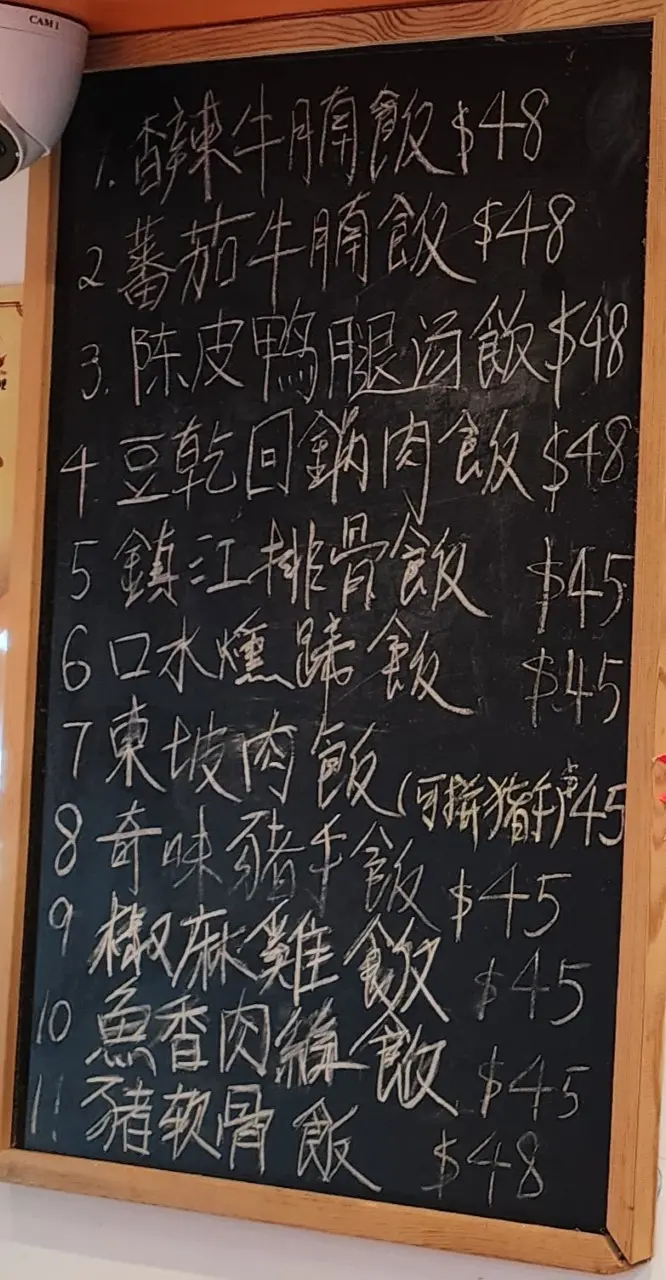 CAM 1
1. 香辣牛腩飯 $48
2 蕃茄牛腩飯 $48
3. 陈皮鴨腿泻飯 $48
4 豆乾回鍋肉飯 $48
5 鎮江排骨飯 $45
6 口水燻蹄飯 $45
7 東坡肉飯 (可拼猪手) $45
8 奇味豬手飯 $45
9 椒麻雞飯 $45
10 魚香肉絲飯 $45
11 豬软骨飯 $48